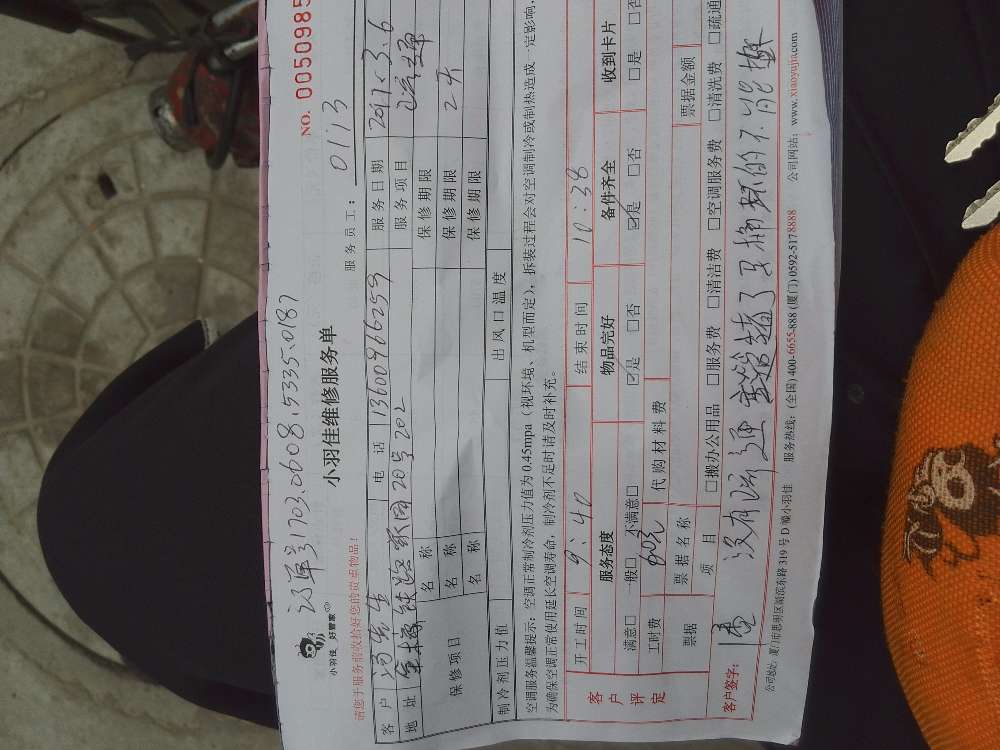 订单号1702.0608.5335.0187
小羽佳 好管家
小羽佳维修服务单
NO. 0050985
请您于服务前收拾好您的贵重物品!
服务员工: 01113
客户 汤先生 电话 13600966259 服务日期 2017.3.6
地址 家园20号202 服务项目
保修项目 名称 保修期限
名称 保修期限 2天
名称 保修期限
制冷剂压力值 出风口温度
空调服务温馨提示:空调正常制冷剂压力值为0.45mpa(视环境、机型而定),拆装过程会对空调制冷或制热造成一定影响,
为确保空调正常使用延长空调寿命,制冷剂不足时请及时补充。
客户评定
开工时间 9:40 结束时间 10:38
服务态度 物品完好 备件齐全 收到卡片
满意□ 一般□ 不满意□ ☑是 □否 ☑是 □否 □是 □否
工时费 80元 代购材料费
票据 票据名称 票据金额
项目 □搬办公用品 □服务费 □清洁费 □空调服务费 □清洗费 □疏通
客户签字: 没有疏通
公司地址:厦门市思明区湖滨东路319号D幢小羽佳 服务热线:(全国)400-6655-888 (厦门)0592-5178888 公司网站:www.xiaoyujia.com